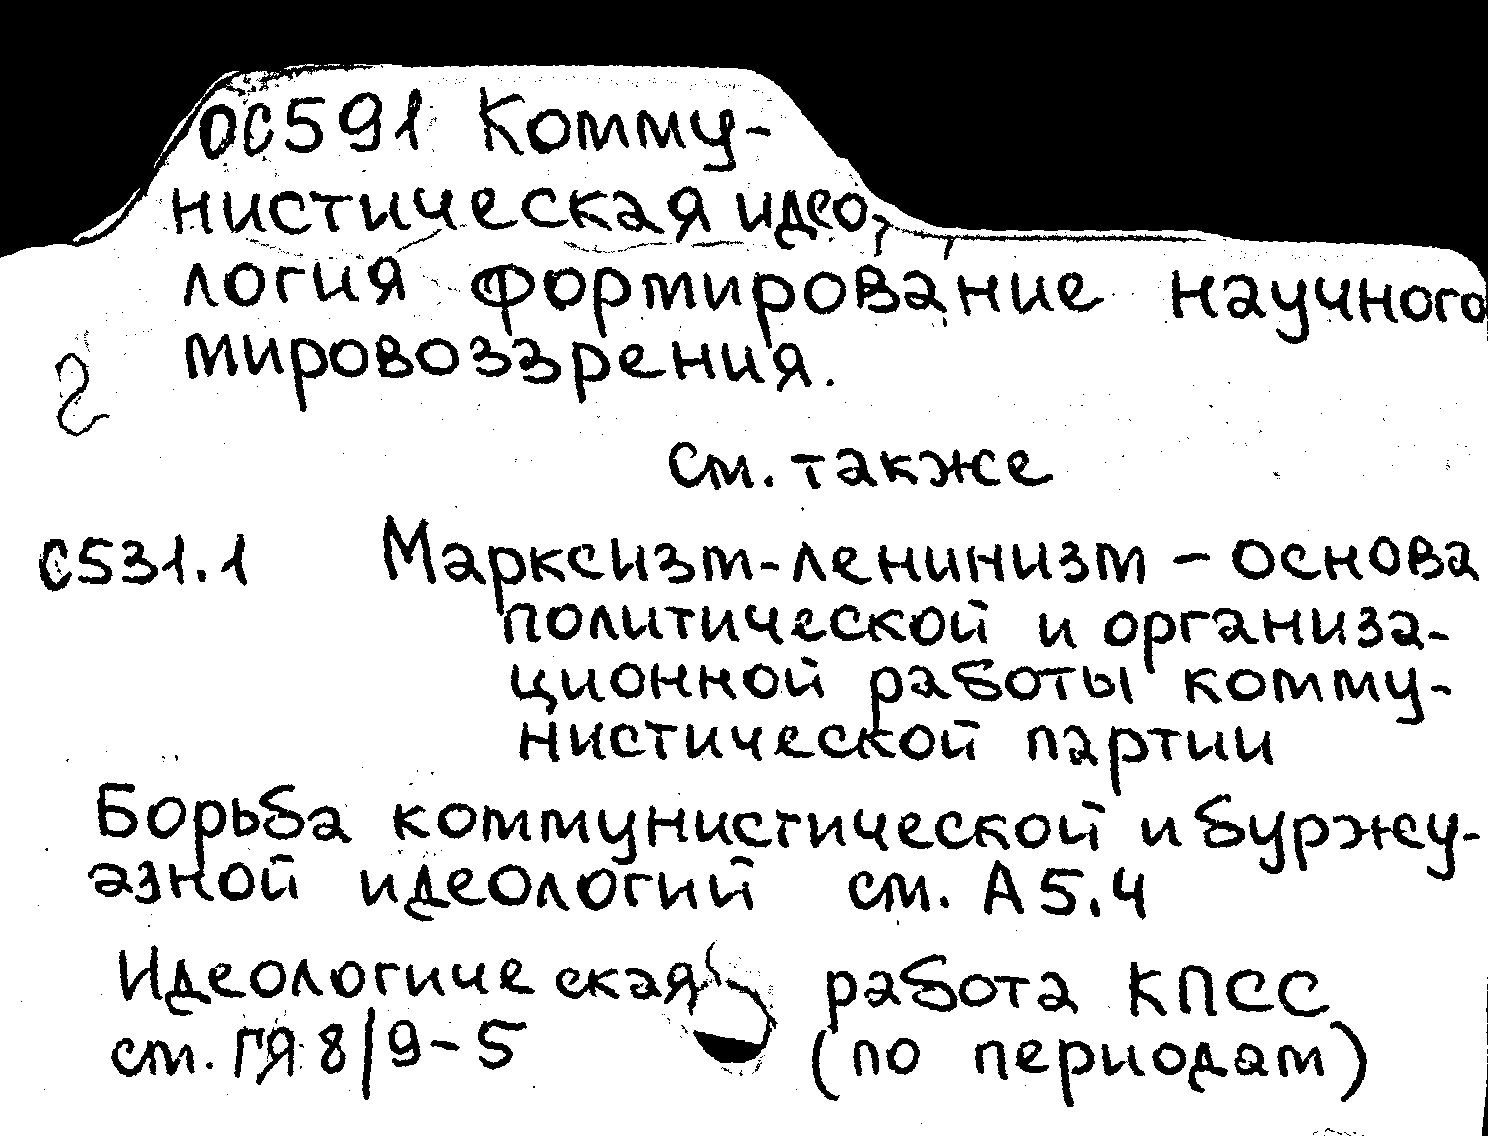 ОС591 Комму-
нистическая идео,
логия формирование научного
мировоззрения.
См. также
С531.1 Марксизм-ленинизм - основа
политической и организа-
ционной работы комму-
нистической партии
Борьба коммунистической и буржу-
азной идеологий см. А5.4
Идеологическая работа КПСС
см. ГЯ 8/9-5 (по периодам)